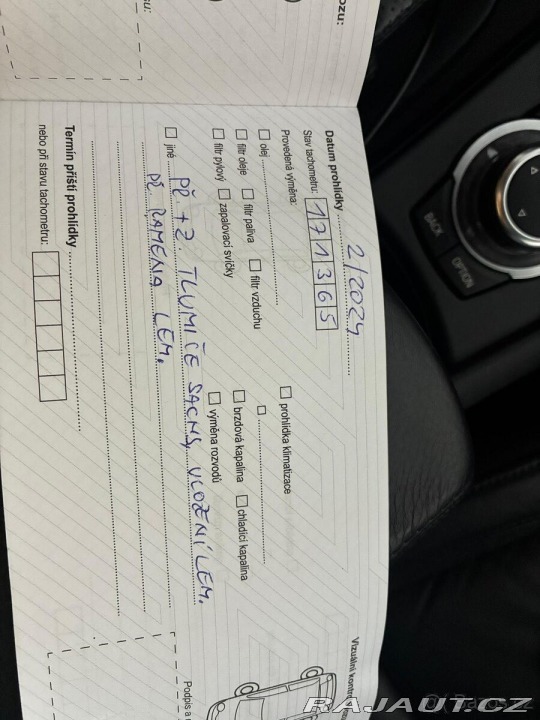 ozu:
Datum prohlídky 2/2024
Stav tachometru: 171365
Provedená výměna:
☐ prohlídka klimatizace
☐ olej
☐
☐ filtr oleje ☐ filtr paliva ☐ filtr vzduchu
☐ brzdová kapalina ☐ chladící kapalina
☐ filtr pylový ☐ zapalovací svíčky
☐ výměna rozvodů
☐ jiné PŘ. + Z TLUMIČE SACHS, ULOŽENÍ LEM.
PŘ. RAMENA LEM.
Termín příští prohlídky
nebo při stavu tachometru:
Vizuální kontr
Podpis a
BACK
OPTION
RAJAUT.CZ